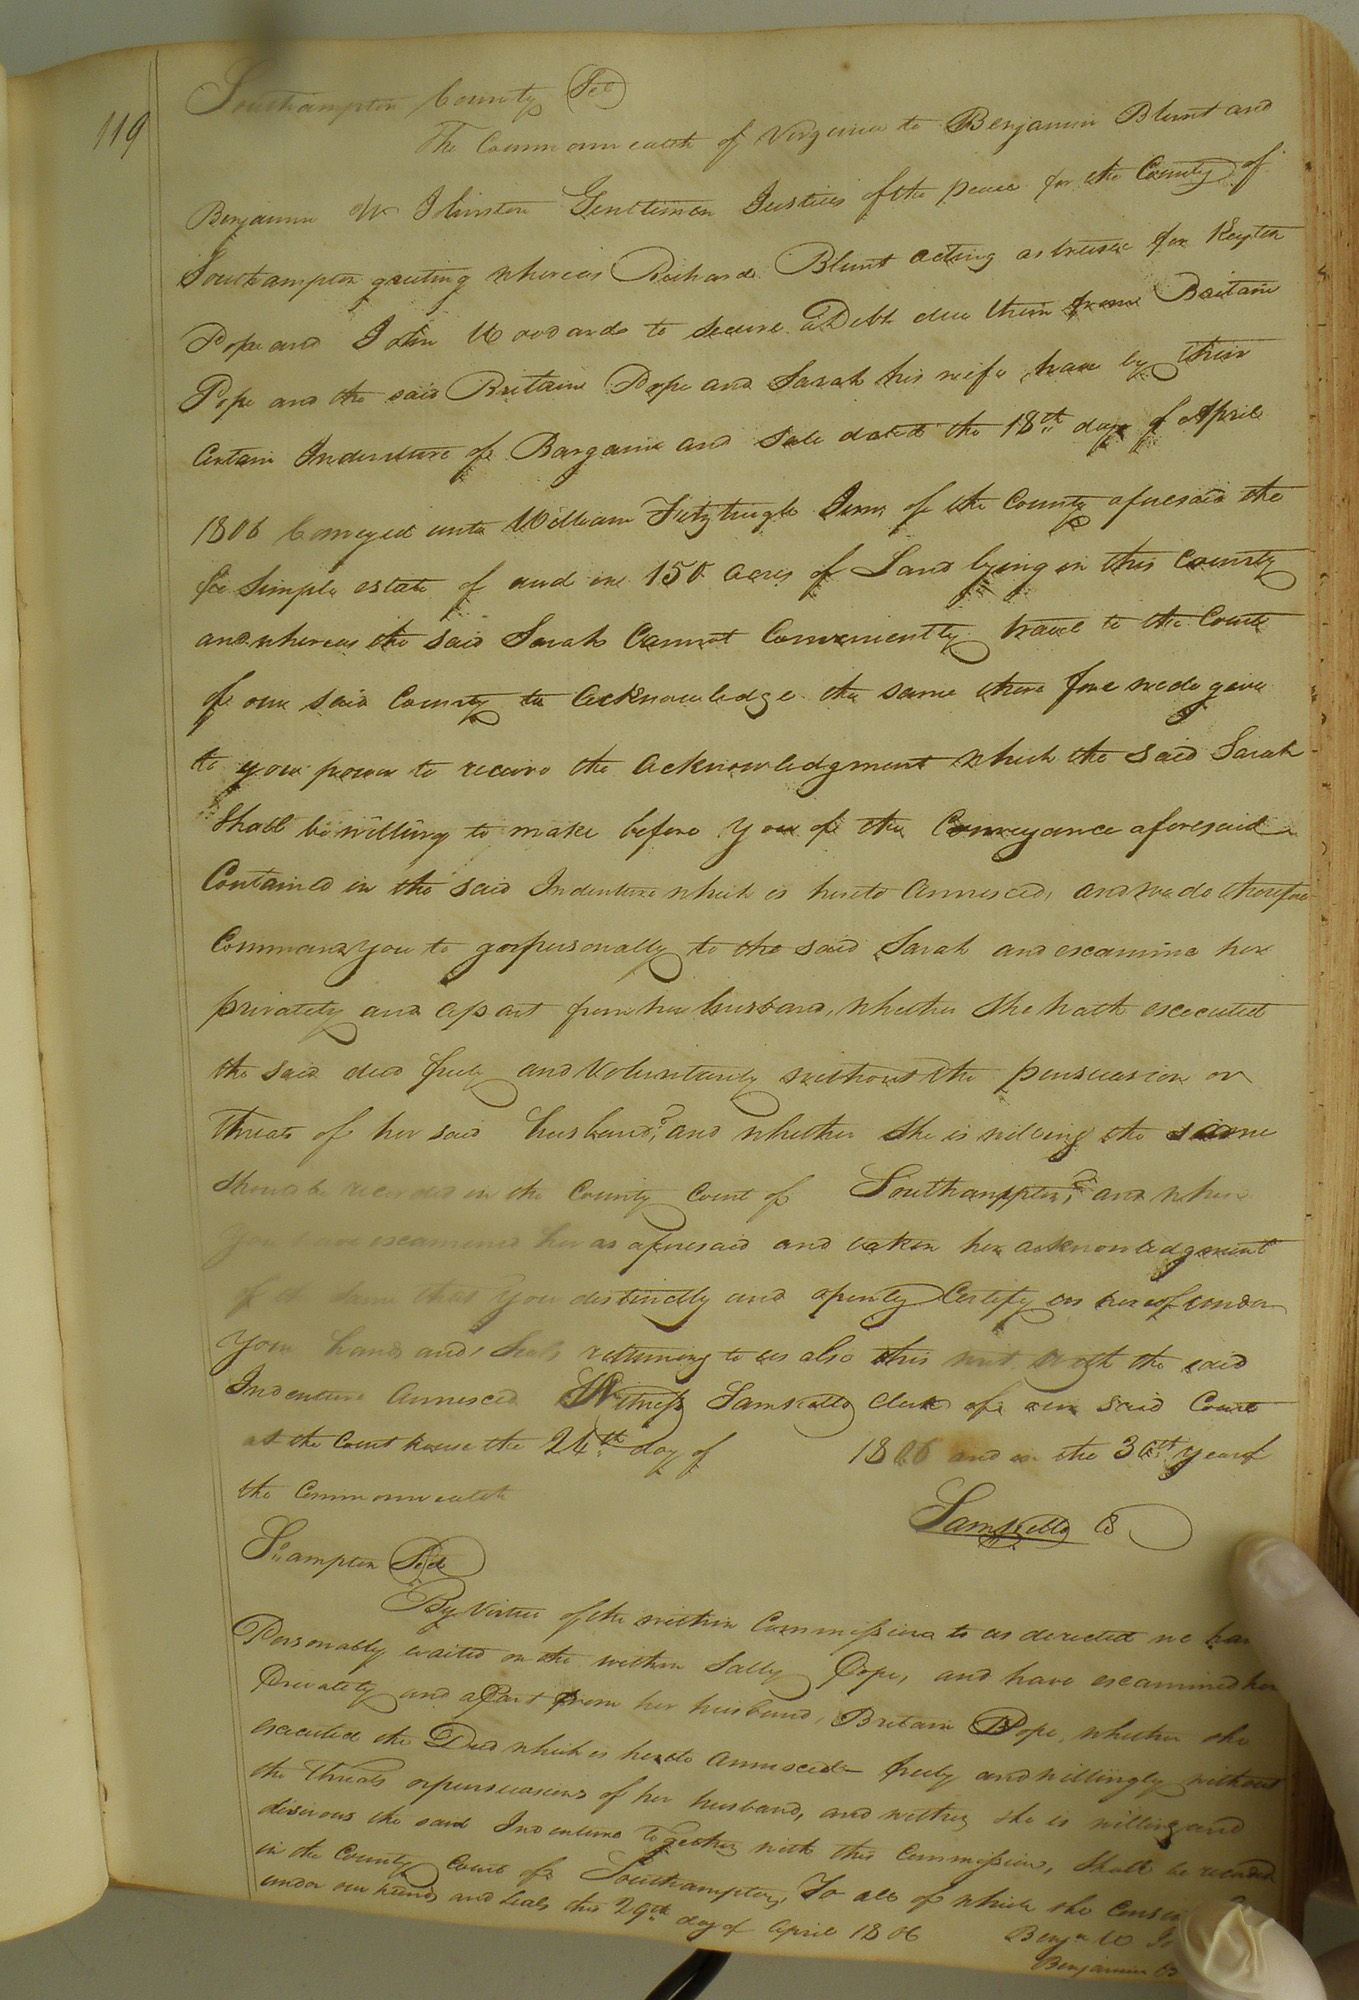 119
Southampton County Sct
The Commonwealth of Virginia to Benjamin Blunt and
Benjamin W Johnston Gentlemen Justices of the peace for the County of
Southampton greeting whereas Richard Blunt acting as trustee for
Pope and John Woodard to secure a Debt due them from Britain
Pope and the said Britain Pope and Sarah his wife, have by their
Certain Indenture of Bargain and Sale dated the 18th day of April
1806 Conveyed unto William Fitzhugh of the County aforesaid the
fee Simple estate of and in 150 acres of Land lying in this County
and whereas the said Sarah Cannot Conveniently travel to the Court
of our said County to acknowledge the same there fore we do give
to you power to receive the acknowledgment which the said Sarah
Shall be willing to make before you of the Conveyance aforesaid
Contained in the said Indenture which is hereto annexed, and we do therefore
Command you to go personally to the said Sarah and examine her
privately and apart from her husband, whether She hath executed
the said deed freely and Voluntarily without the persuasion or
threats of her said husband? and whether She is willing the same
Should be recorded in the County Court of Southampton? and when
you have examined her as aforesaid and taken her acknowledgment
of the Same that you distinctly and openly Certify us thereof under
your hands and Seals returning to us also this writ with the said
Indenture annexed Witness Saml Kello Clerk of our said Court
at the Court house the 24th day of 1806 and in the 30th year of
the Commonwealth
Saml Kello C
So ampton Sct
By Virtue of the within Commission to us directed we have
Personally waited on the within Sally Pope, and have examined her
Privately and apart from her husband, Britain Pope, whether she
executed the Deed which is hereto annexed freely and willingly without
the threats or persuasions of her husband, and whether she is willing and
desirous the said Indenture together with this Commission, Shall be recorded
in the County Court of Southampton, To all of which she
under our hands and Seals this 29th day of April 1806
Benja W
Benjamin